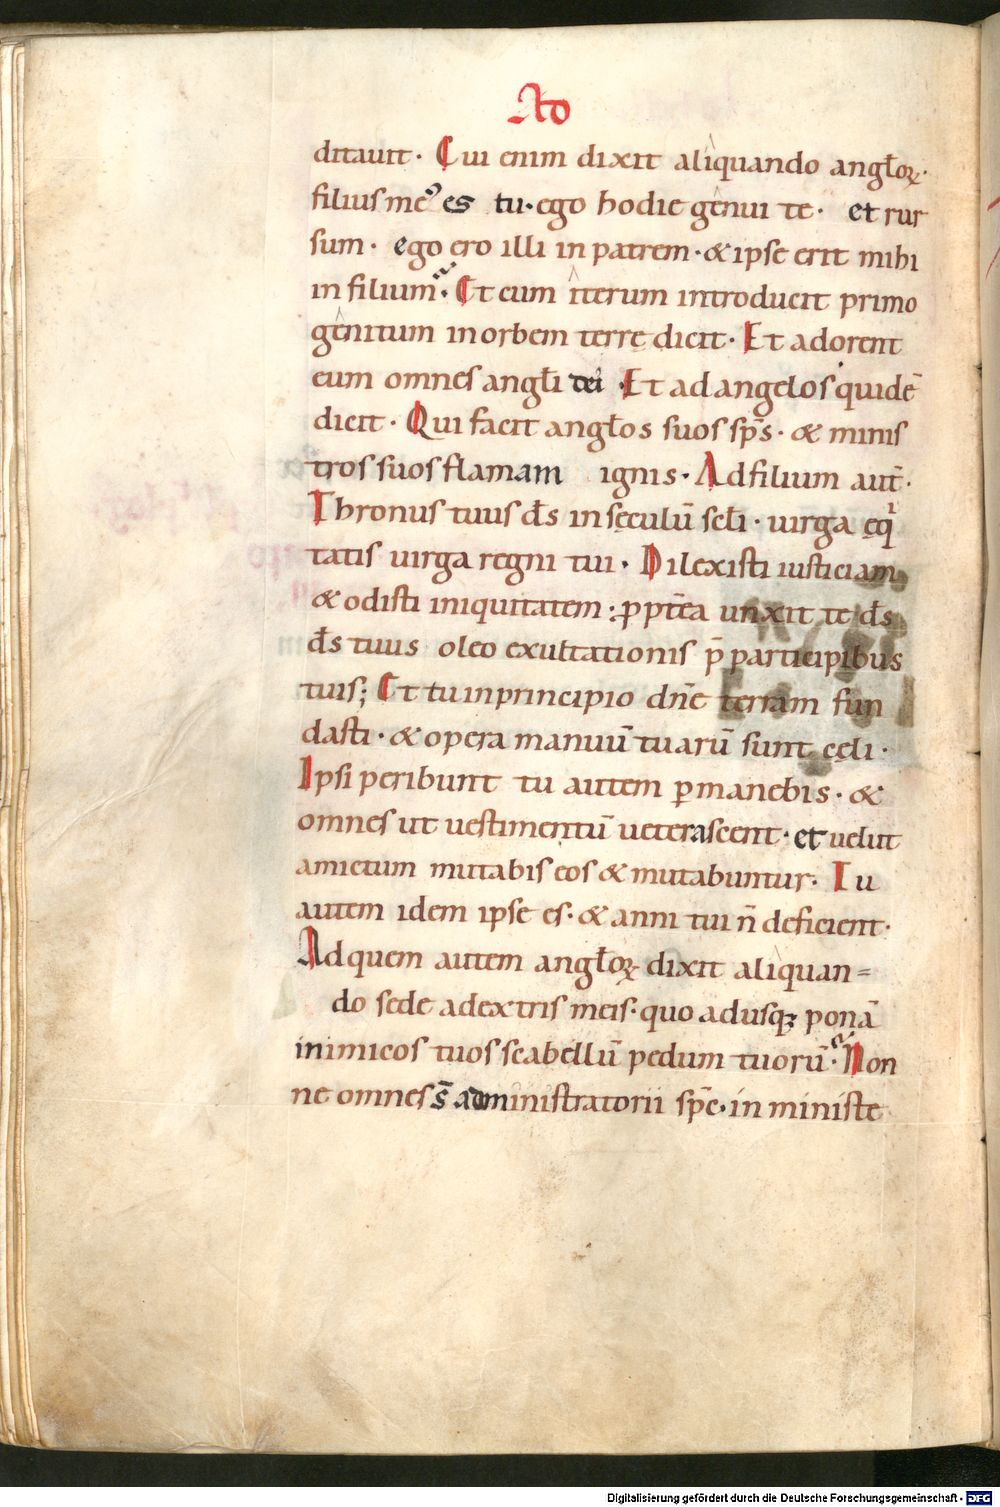 Ad
ditauit· Cui enim dixit aliquando angl̄oꝝ·
filius me᷒ es tu· ego hodie genui te· et rur
sum· ego ero illi in patrem·& ipse erit mihi
in filium· Et cum iterum introducit primo
genitum in orbem terrę dicit· Et adorent
eum omnes angl̄i dei ·Et ad angelos quidē
dicit· Qui facit angl̄os suos sp̄s· & minis
tros suos flamam ignis· Ad filium aut̄·
Thronus tuus d̄s in sęculū scl̄i· uirga ęq
tatis uirga regni tui· Dilexisti iusticiam
& odisti iniquitatem: ꝓpt̄ea unxit te d̄s
d̄s tuus oleo exultationis p̄ participibus
tuis; Et tu in principio dn̄e terram fun
dasti· & opera manuū tuarū sunt cęli·
Ipsi peribunt tu autem ꝑmanebis· &
omnes ut uestimentū ueterascent· et uelut
amictum mutabis eos & mutabuntur· Tu
autem idem ipse es· & anni tui n̄ deficient·
Ad quem autem angl̄oꝝ dixit aliquan=
do sede adextris meis· quo adusqꝫ ponā
inimicos tuos scabellū pedum tuorū· Non
ne omnes s̄ administratorii sp̄c· in ministe
Digitalisierung gefördert durch die Deutsche Forschungsgemeinschaft - DFG